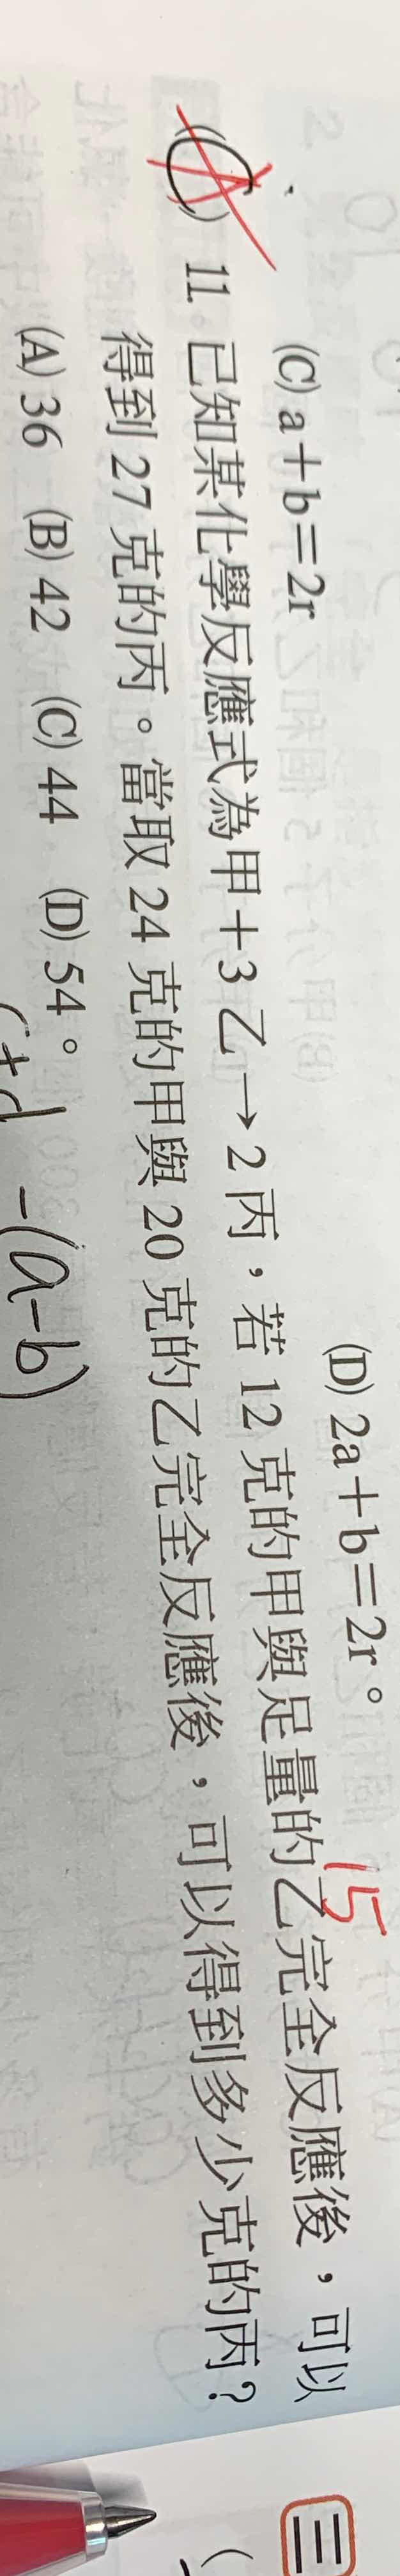 (C) a+b=2r (D) 2a+b=2r。
(A) 11. 已知某化學反應式為甲+3乙→2丙,若12克的甲與足量的乙完全反應後,可以
15
得到27克的丙。當取24克的甲與20克的乙完全反應後,可以得到多少克的丙?
(A) 36 (B) 42 (C) 44 (D) 54。
c+d -(a-b)
三
(